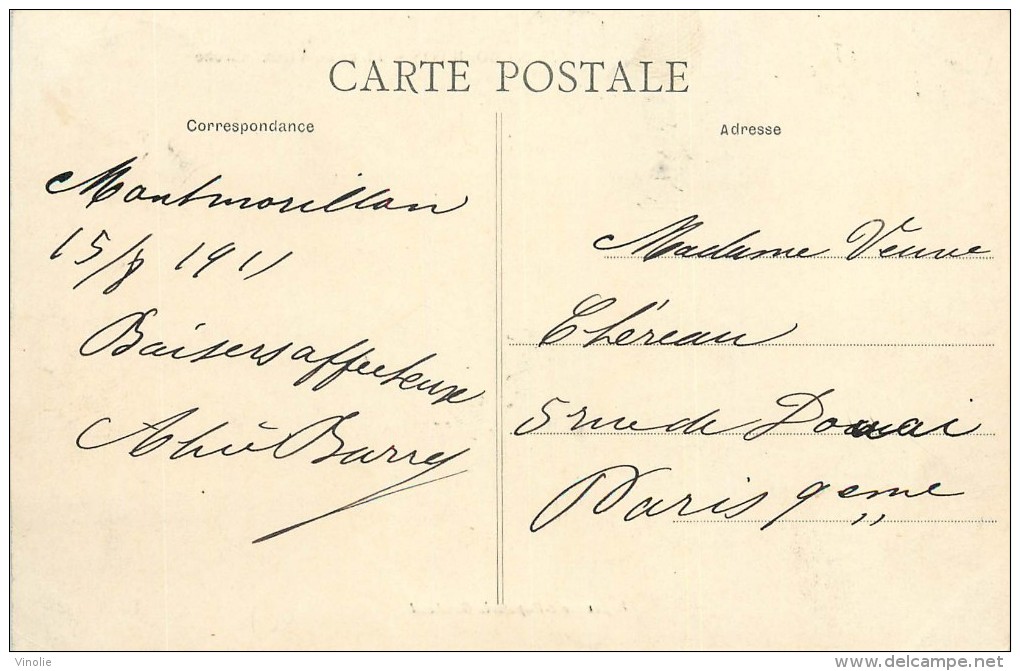 CARTE POSTALE
Correspondance
Montmorillon
15/8 1911
Baisers affectueux
Barrey
Adresse
Madame Veuve
Théreau
5 rue de Douai
Paris 9eme
Vinolie
delcampe.net